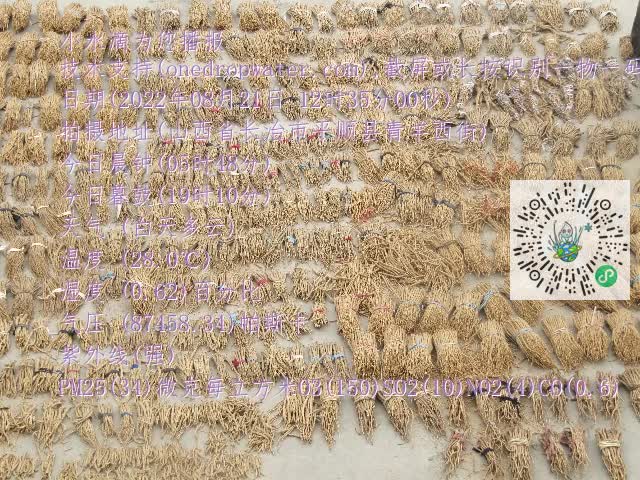 小水滴为您播报
技术支持(onedropwater.com) 截屏或长按识别一物一码
日期(2022年08月21日 12时35分00秒)
拍摄地址(山西省长治市平顺县青羊西街)
今日晨钟(05时48分)
今日暮鼓(19时10分)
天气 (白天多云)
温度 (28.0℃)
湿度 (0.62)百分比
气压 (87458.34)帕斯卡
紫外线(强)
PM25(34)微克每立方米O3(150)SO2(10)NO2(4)CO(0.6)